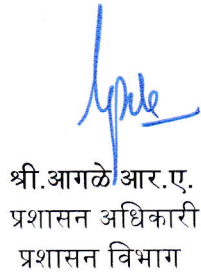 श्री.आगळे आर.ए.
प्रशासन अधिकारी
प्रशासन विभाग